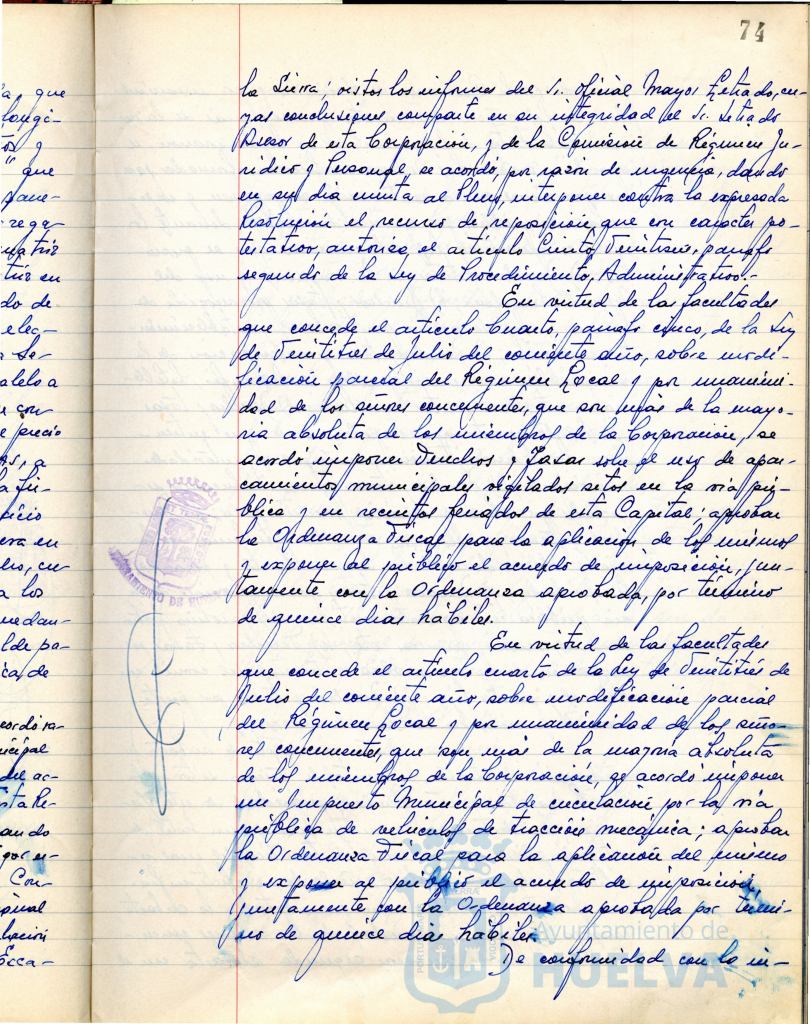 74
la Sierra; vistos los informes del Sr. Oficial Mayor Letrado, cu-
yas conclusiones comparte en su integridad el Sr. Letrado
Asesor de esta Corporación, y de la Comisión de Régimen Ju-
rídico y Personal, se acordó, por razón de urgencia, dando
en su día cuenta al Pleno, interponer contra la expresada
Resolución el recurso de reposición que con caracter po-
testativo, autoriza el artículo Ciento Veintiseis, parrafo
segundo de la Ley de Procedimiento Administrativo.-
En virtud de las facultades
que concede el artículo Cuarto, párrafo cinco, de la Ley
de Veintitres de Julio del corriente año, sobre modi-
ficación parcial del Régimen Local y por unanimi-
dad de los señores concurrentes, que son más de la mayo-
ria absoluta de los miembros de la Corporación, se
acordó imponer Derechos y Tasas sobre el uso de apar-
camientos municipales vigilados sitos en la vía pú-
blica y en recintos feriados de esta Capital; aprobar
la Ordenanza Fiscal para la aplicación de los mismos
y exponer al público el acuerdo de imposición, jun-
tamente con la Ordenanza aprobada, por término
de quince dias hábiles.
En virtud de las facultades
que concede el artículo cuarto de la Ley de Veintitrés de
Julio del corriente año, sobre modificación parcial
del Régimen Local y por unanimidad de los seño-
res concurrentes, que son más de la mayoría absoluta
de los miembros de la Corporación, se acordó imponer
un Impuesto Municipal de circulación por la vía
pública de vehiculos de tracción mecánica; aprobar
la Ordenanza Fiscal para la aplicación del mismo
y exponer al público el acuerdo de imposición,
juntamente con la Ordenanza aprobada por térmi-
no de quince dias hábiles.
De conformidad con la in-
Ayuntamiento de
HUELVA